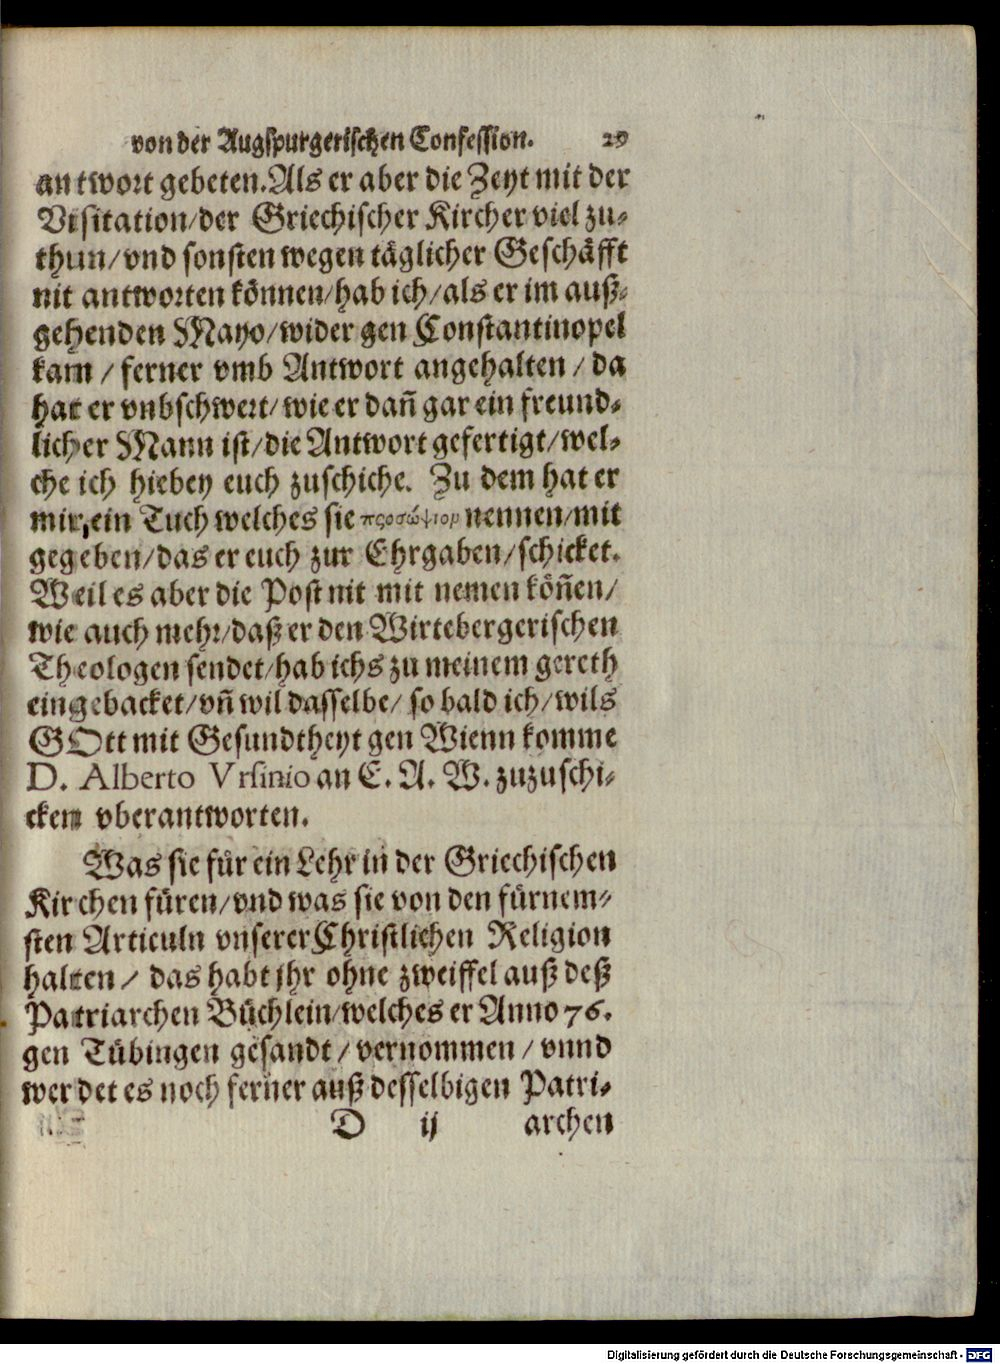 von der Augspurgerischen Confession. 29
antwort gebeten. Als er aber die Zeyt mit der
Visitation/ der Griechischer Kircher viel zu-
thun/ vnd sonsten wegen täglicher Geschäfft
nit antworten können/ hab ich/ als er im auß-
gehenden Mayo/ wider gen Constantinopel
kam / ferner vmb Antwort angehalten / da
hat er vnbschwert/ wie er dañ gar ein freund-
licher Mann ist/ die Antwort gefertigt/ wel-
che ich hiebey euch zuschiche. Zu dem hat er
mir, ein Tuch welches sie προσώψιον nennen/ mit
gegeben/ das er euch zur Ehrgaben/ schicket.
Weil es aber die Post nit mit nemen köñen/
wie auch mehr/ daß er den Wirtebergerischen
Theologen sendet/ hab ichs zu meinem gereth
eingebacket/ vñ wil dasselbe/ so bald ich/ wils
GOtt mit Gesundtheyt gen Wienn komme
D. Alberto Vrsinio an E. A. W. zuzuschi-
cken vberantworten.
Was sie für ein Lehr in der Griechischen
Kirchen füren/ vnd was sie von den fürnem-
sten Articuln vnserer Christlichen Religion
halten / das habt jhr ohne zweiffel auß deß
Patriarchen Büchlein/ welches er Anno 76.
gen Tübingen gesandt / vernommen / vnnd
werdet es noch ferner auß desselbigen Patri-
D ij archen
Digitalisierung gefördert durch die Deutsche Forschungsgemeinschaft - DFG